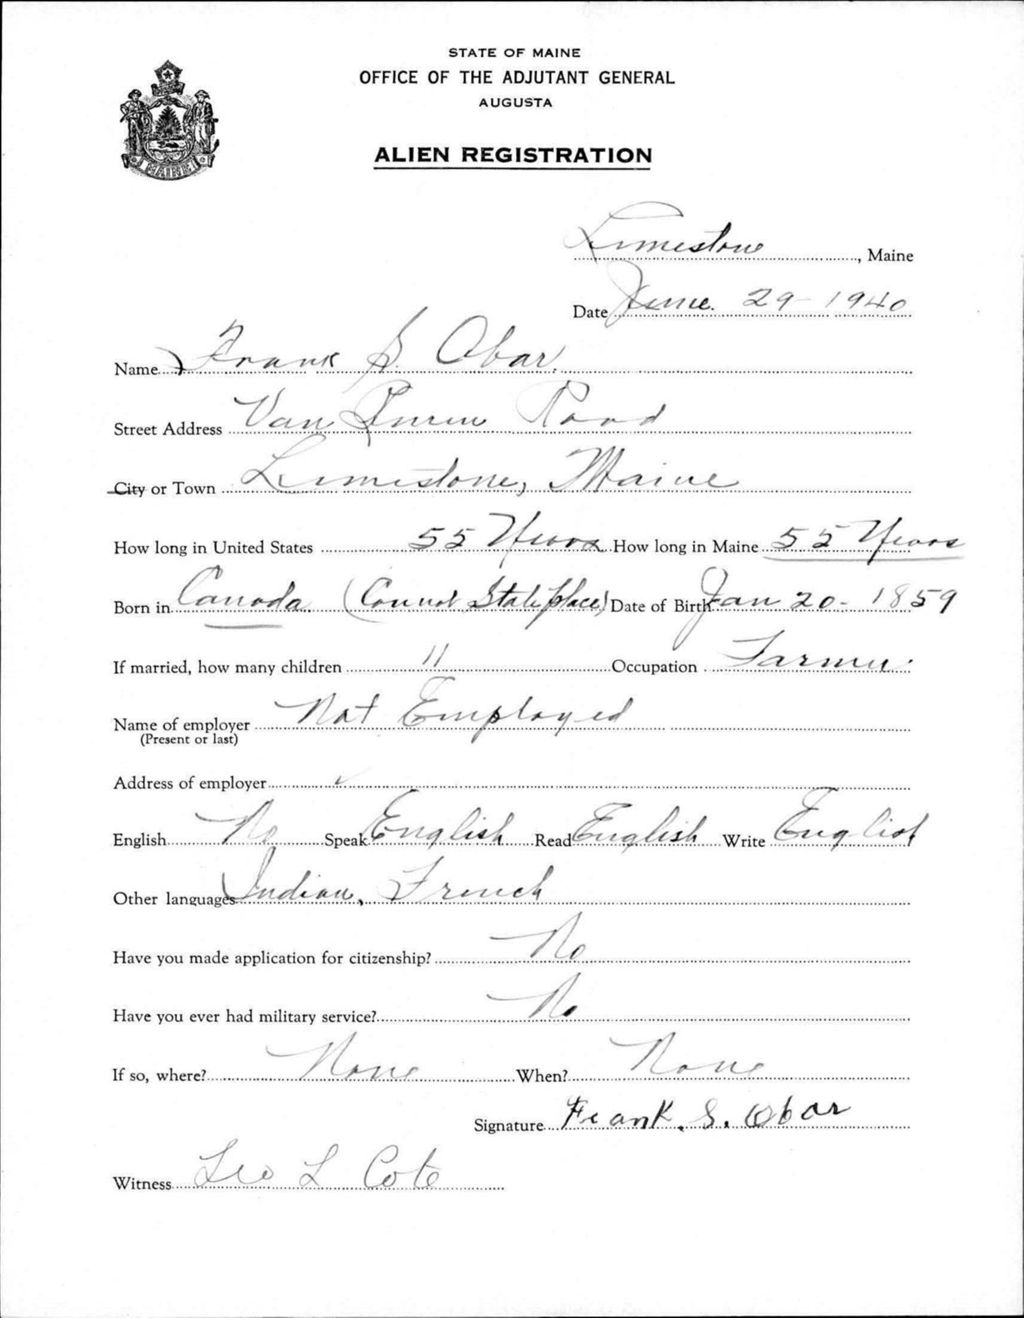 STATE OF MAINE
OFFICE OF THE ADJUTANT GENERAL
AUGUSTA
ALIEN REGISTRATION
MAINE
Limestone, Maine
Date June. 29 - 1940
Name Frank S. Obar.
Street Address Van Buren Road
City or Town Limestone, Maine
How long in United States 55 Years How long in Maine 55 Years
Born in Canada. (Cannot State place) Date of Birth Jan 20 - 1859
If married, how many children 11 Occupation Farmer
Name of employer Not Employed
(Present or last)
Address of employer
English No Speak English Read English Write English
Other languages Indian, French
Have you made application for citizenship? No
Have you ever had military service? No
If so, where? None When? None
Signature Frank. S. Obar
Witness Leo L Cote